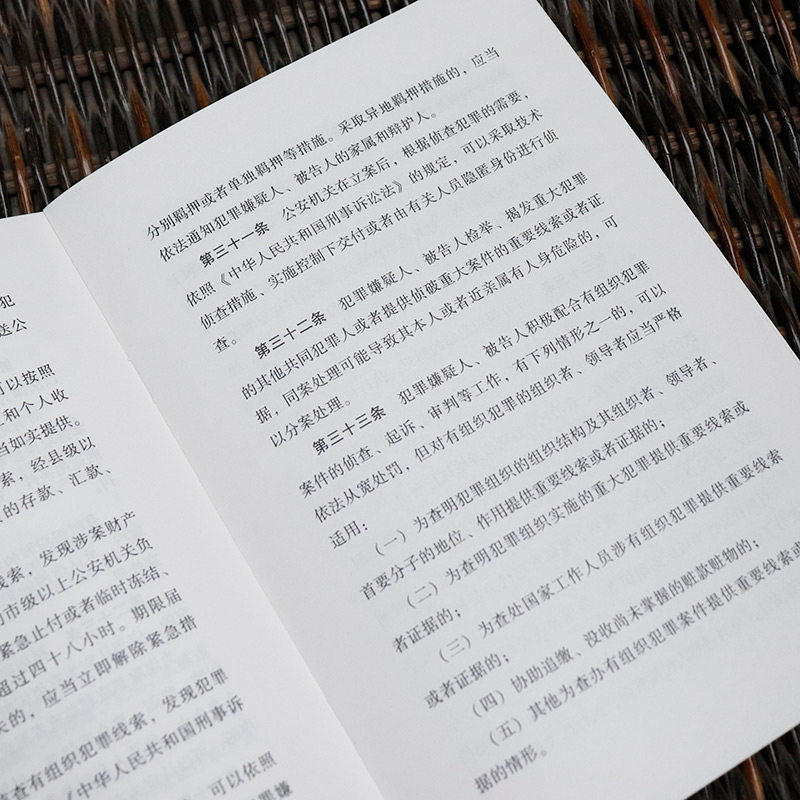 犯
送公
可以按照
和个人收
当如实提供。
索，经县级以
的存款、汇款、
线索，发现涉案财产
市级以上公安机关负
紧急止付或者临时冻结、
超过四十八小时。期限届
失的，应当立即解除紧急措
查有组织犯罪线索，发现犯罪
《中华人民共和国刑事诉
可以依照
罪嫌
分别羁押或者单独羁押等措施。采取异地羁押措施的，应当
依法通知犯罪嫌疑人、被告人的家属和辩护人。
第三十一条 公安机关在立案后，根据侦查犯罪的需要，
依照《中华人民共和国刑事诉讼法》的规定，可以采取技术
侦查措施、实施控制下交付或者由有关人员隐匿身份进行侦
查。
第三十二条 犯罪嫌疑人、被告人检举、揭发重大犯罪
的其他共同犯罪人或者提供侦破重大案件的重要线索或者证
据，同案处理可能导致其本人或者近亲属有人身危险的，可
以分案处理。
第三十三条 犯罪嫌疑人、被告人积极配合有组织犯罪
案件的侦查、起诉、审判等工作，有下列情形之一的，可以
依法从宽处罚，但对有组织犯罪的组织者、领导者应当严格
适用：
（一）为查明犯罪组织的组织结构及其组织者、领导者、
首要分子的地位、作用提供重要线索或者证据的；
（二）为查明犯罪组织实施的重大犯罪提供重要线索或
者证据的；
（三）为查处国家工作人员涉有组织犯罪提供重要线索
或者证据的；
（四）协助追缴、没收尚未掌握的赃款赃物的；
（五）其他为查办有组织犯罪案件提供重要线索或
据的情形。